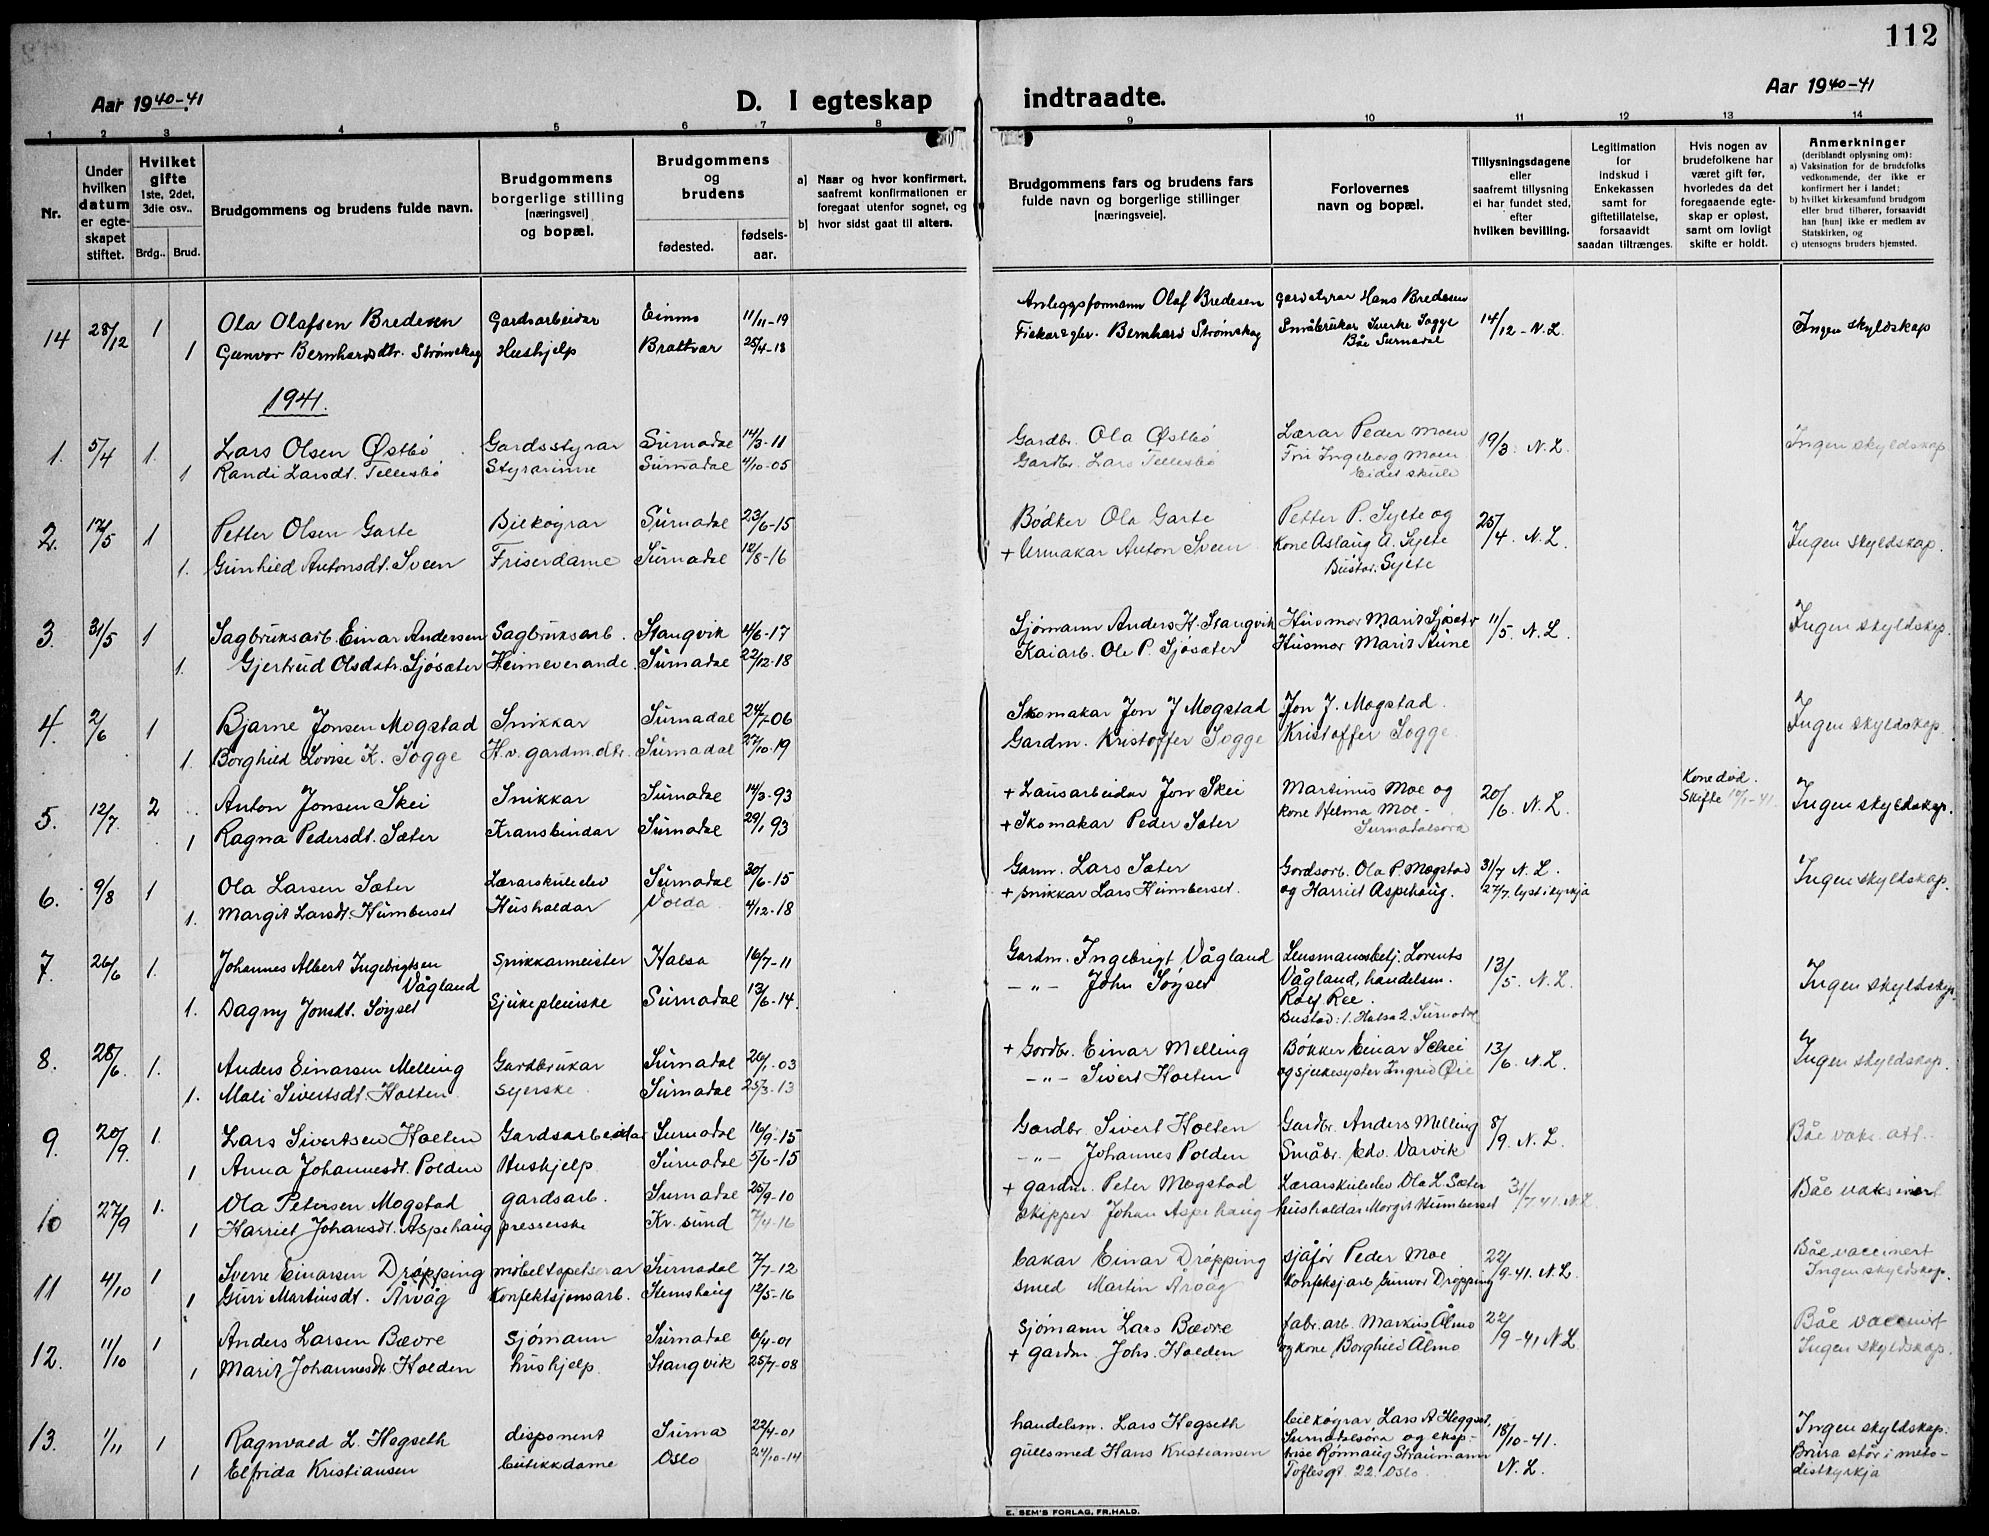 112
Aar 1940-41
D. I egteskap indtraadte.
Aar 1940-41
1 2 3 4 5 6 7 8 9 10 11 12 13 14
Nr.
Under hvilken datum er egteskapet stiftet.
Hvilket gifte 1ste, 2det, 3die osv..
Brdg.. Brud.
Brudgommens og brudens fulde navn.
Brudgommens borgerlige stilling [næringsvei] og bopæl.
Brudgommens og brudens
fødested. fødselsaar.
a) Naar og hvor konfirmert, saafremt konfirmationen er foregaat utenfor sognet, og
b) hvor sidst gaat til alters.
Brudgommens fars og brudens fars fulde navn og borgerlige stillinger [næringsveie].
Forlovernes navn og bopæl.
Tillysningsdagene eller saafremt tillysning ei har fundet sted, efter hvilken bevilling.
Legitimation for indskud i Enkekassen samt for giftetillatelse, forsaavidt saadan tiltrænges.
Hvis nogen av brudefolkene har været gift før, hvorledes da det foregaaende egteskap er opløst, samt om lovligt skifte er holdt.
Anmerkninger
(deriblandt oplysning om):
a) Vaksination for de brudefolks vedkommende, der ikke er konfirmert her i landet;
b) hvilket kirkesamfund brudgom eller brud tilhører, forsaavidt han [hun] ikke er medlem av Statskirken, og
c) utensogns bruders hjemsted.
14 28/12 1 Ola Olafsen Bredesen Gardsarbeidar 11/11-19 Anleggsformann Olaf Bredesen gardstyrar Hans Bredesen 14/12 - N.L. Ingen skyldskap
1 Gunvor Bernhardsdtr. Strømskag Hushjelp Brattvær 25/4-18 Bernhard Strømskag Småbrukar Sverke Sogge
Båe Surnadal
1941.
1. 5/4 1. Lars Olsen Østbø Gardsstyrar Surnadal 14/3-11 Gardbr. Ola Østbø Lærar Peder Moen 19/3. N.L. Ingen skyldskap
1 Randi Larsdt. Tellesbø Styrarinne Surnadal 4/10-05 Gardbr. Lars Tellesbø Frú Ingeborg Moen
Eidet skule
2. 17/5 1 Petter Olsen Garte Bilkøyrar Surnadal 23/6-15 Bødker Ola Garte Petter P. Sylte og 25/4. N.L. Ingen skyldskap.
1. Gunhild Antonsdt. Sveen Friserdame Surnadal 12/8-16 + Urmakar Anton Sveen Kone Aslaug A. Sylte
Bustad. Sylte
3. 31/5 1 Sagbruksarb. Einar Andersen Sagbruksarb. Stangvik 14/6-17 Sjømann Anders H. Stangvik Husmor Marit Sjøsæter 11/5. N.L. Ingen skyldskap.
1. Gjertrud Olsdatr. Sjøsæter Heimeverande. Surnadal 22/12-18 Kaiarb. Ole P. Sjøsæter Husmor Marit Aune
4. 2/6 1 Bjarne Jonsen Mogstad Snikkar Surnadal 24/7-06 Skomakar Jon J Mogstad Jon J. Mogstad. Ingen skyldskap.
1. Borghild Lovise K. Sogge H.v. gardm.dtr. Surnadal 27/10-19 Gardm. Kristoffer Sogge Kristoffer Sogge.
5. 12/7. 2 Anton Jonsen Skei Snikkar Surnadal 14/3-93 + Lausarbeidar Jon Skei Martinus Moe og 20/6. N.L. Kone død. Ingen skyldskap.
1 Ragna Pedersdt. Sæter Kransbindar Surnadal 29/1 93 + Skomakar Peder Sæter kone Helma Moe - Skifte
Surnadalsøra
6. 9/8 1 Ola Larsen Sæter Lærarskulelev Surnadal 30/6-15 Garm. Lars Sæter Gardsarb. Ola P. Mogstad 31/7 N.L. Ingen skyldskap.
1. Margit Larsdt. Humberset Hushaldar Volda 4/12-18 + snikkar Lars Humberset. og Harriet Aspehaug. 27/7. lyst i kyrkja
7. 26/6 1. Johannes Albert Ingebrigtsen Vågland Snikkarmeister Halsa 16/7-11 Gardm. Ingebrigt Vågland Lensmannsbetj. Lorents 13/5. N.L. Ingen skyldskap.
1. Dagny Jonsdt. Søyset Sjukepleierske Surnadal 13/6-14. -"- John Søyset Vågland, handelsm.
Rolf Ree.
Bustad: 1. Halsa 2. Surnadal
8. 28/6. 1. Anders Einarsen Melling Gardbrukar Surnadal 20/1-03 + Gardbr. Einar Melling Bøkker Einar Schei 13/6. N.L. Ingen skyldskap.
1. Mali Sivertsdt. Holten syerske Surnadal 25/3-13 -"- Sivert Holten og sjukesyster Ingrid Øie
9. 20/9. 1. Lars Sivertsen Holten Gardsarbeidar Surnadal 16/9-15 Gardbr. Sivert Holten Gardbr. Anders Melling 8/9. N.L. Båe vaks. att.
1 Anna Johannesdt. Polden Hushjelp Surnadal 5/6-15 -"- Johannes Polden Småbr. Edv. Varvik
10 27/9 1. Ola Petersen Mogstad gardsarb. Surnadal 25/9-10 + gardm. Peter Mogstad Lærarskulelev Ola L. Sæter 31/7 41. N.L. Båe vaksinert
1 Harriet Johansdt. Aspehaug presserske Kr.sund 7/4-16 skipper Johan Aspehaug hushaldar Margit Humberset
11 4/10 1 Sverre Einarsen Drøpping møbeltapetserar Surnadal 7/7-12 bakar Einar Drøpping sjåfør Peder Moe 22/9-41. N.L. Båe vaccinert
1 Guri Martinusdt. Årvåg Konfeksjonsarb. Stemshaug 12/5-16 smed Martin Årvåg Konfeksj.arb. Gunvor Drøpping Ingen skyldskap.
12. 11/10 1 Anders Larsen Bævre sjømann Surnadal 6/4-01 sjømann Lars Bævre fabr.arb. Markus Ålmo 22/9-41 N.L. Båe vaccinert
1 Marit Johannesdt. Holden hushjelp Stangvik 25/7-08 + gardm. Johs. Holden og kone Borghild Ålmo Ingen skyldskap.
13. 1/11 1 Ragnvald L. Hegseth disponent Surna 22/4-01 handelsm. Lars Hegseth bilkøyrar Lars A Heggset, 18/10-41. Ingen skyldskap.
1 Elfrida Kristiansen butikkdame Oslo 24/10-14 gullsmed Hans Kristiansen Surnadalsøra og eksp- N.L. Brura står i meto-
trise Rønnaug Straumann distkyrkja
Toftesgt. 22. Oslo.
E. SEM'S FORLAG, FR.HALD.